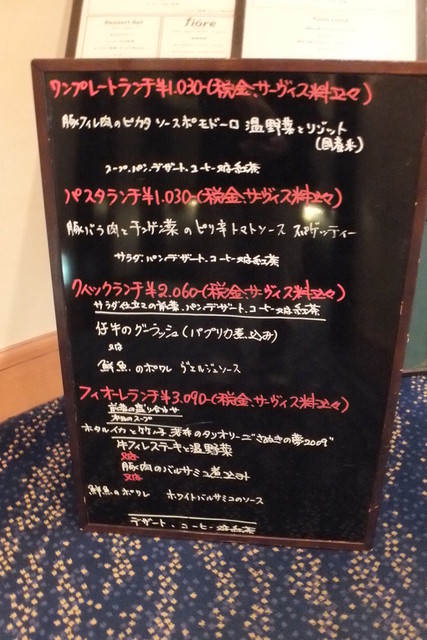 fiore
ワンプレートランチ¥1.030-(税金、サーヴィス料込々)
豚フィレ肉のピカタ ソースポモドーロ 温野菜とリゾット
(国産米)
スープ、パン、デザート、コーヒー又は紅茶
パスタランチ¥1.030-(税金、サーヴィス料込々)
豚バラ肉とチンゲン菜のピリ辛トマトソース スパゲッティー
サラダ、パン、デザート、コーヒー又は紅茶
クイックランチ¥2.060-(税金、サーヴィス料込々)
サラダ仕立ての前菜、パン、デザート、コーヒー又は紅茶
仔牛のグーラッシュ(パプリカ煮込み)
又は
鮮魚のポワレ ヴェルジュソース
フィオーレランチ¥3.090-(税金、サーヴィス料込々)
前菜の盛り合わせ
本日のスープ
ホタルイカと竹の子 若布のタリオリーニ"さぬきの夢2009"
牛フィレステーキと温野菜
又は
豚肉のバルサミコ煮込み
又は
鮮魚のポワレ ホワイトバルサミコのソース
デザート、コーヒー又は紅茶